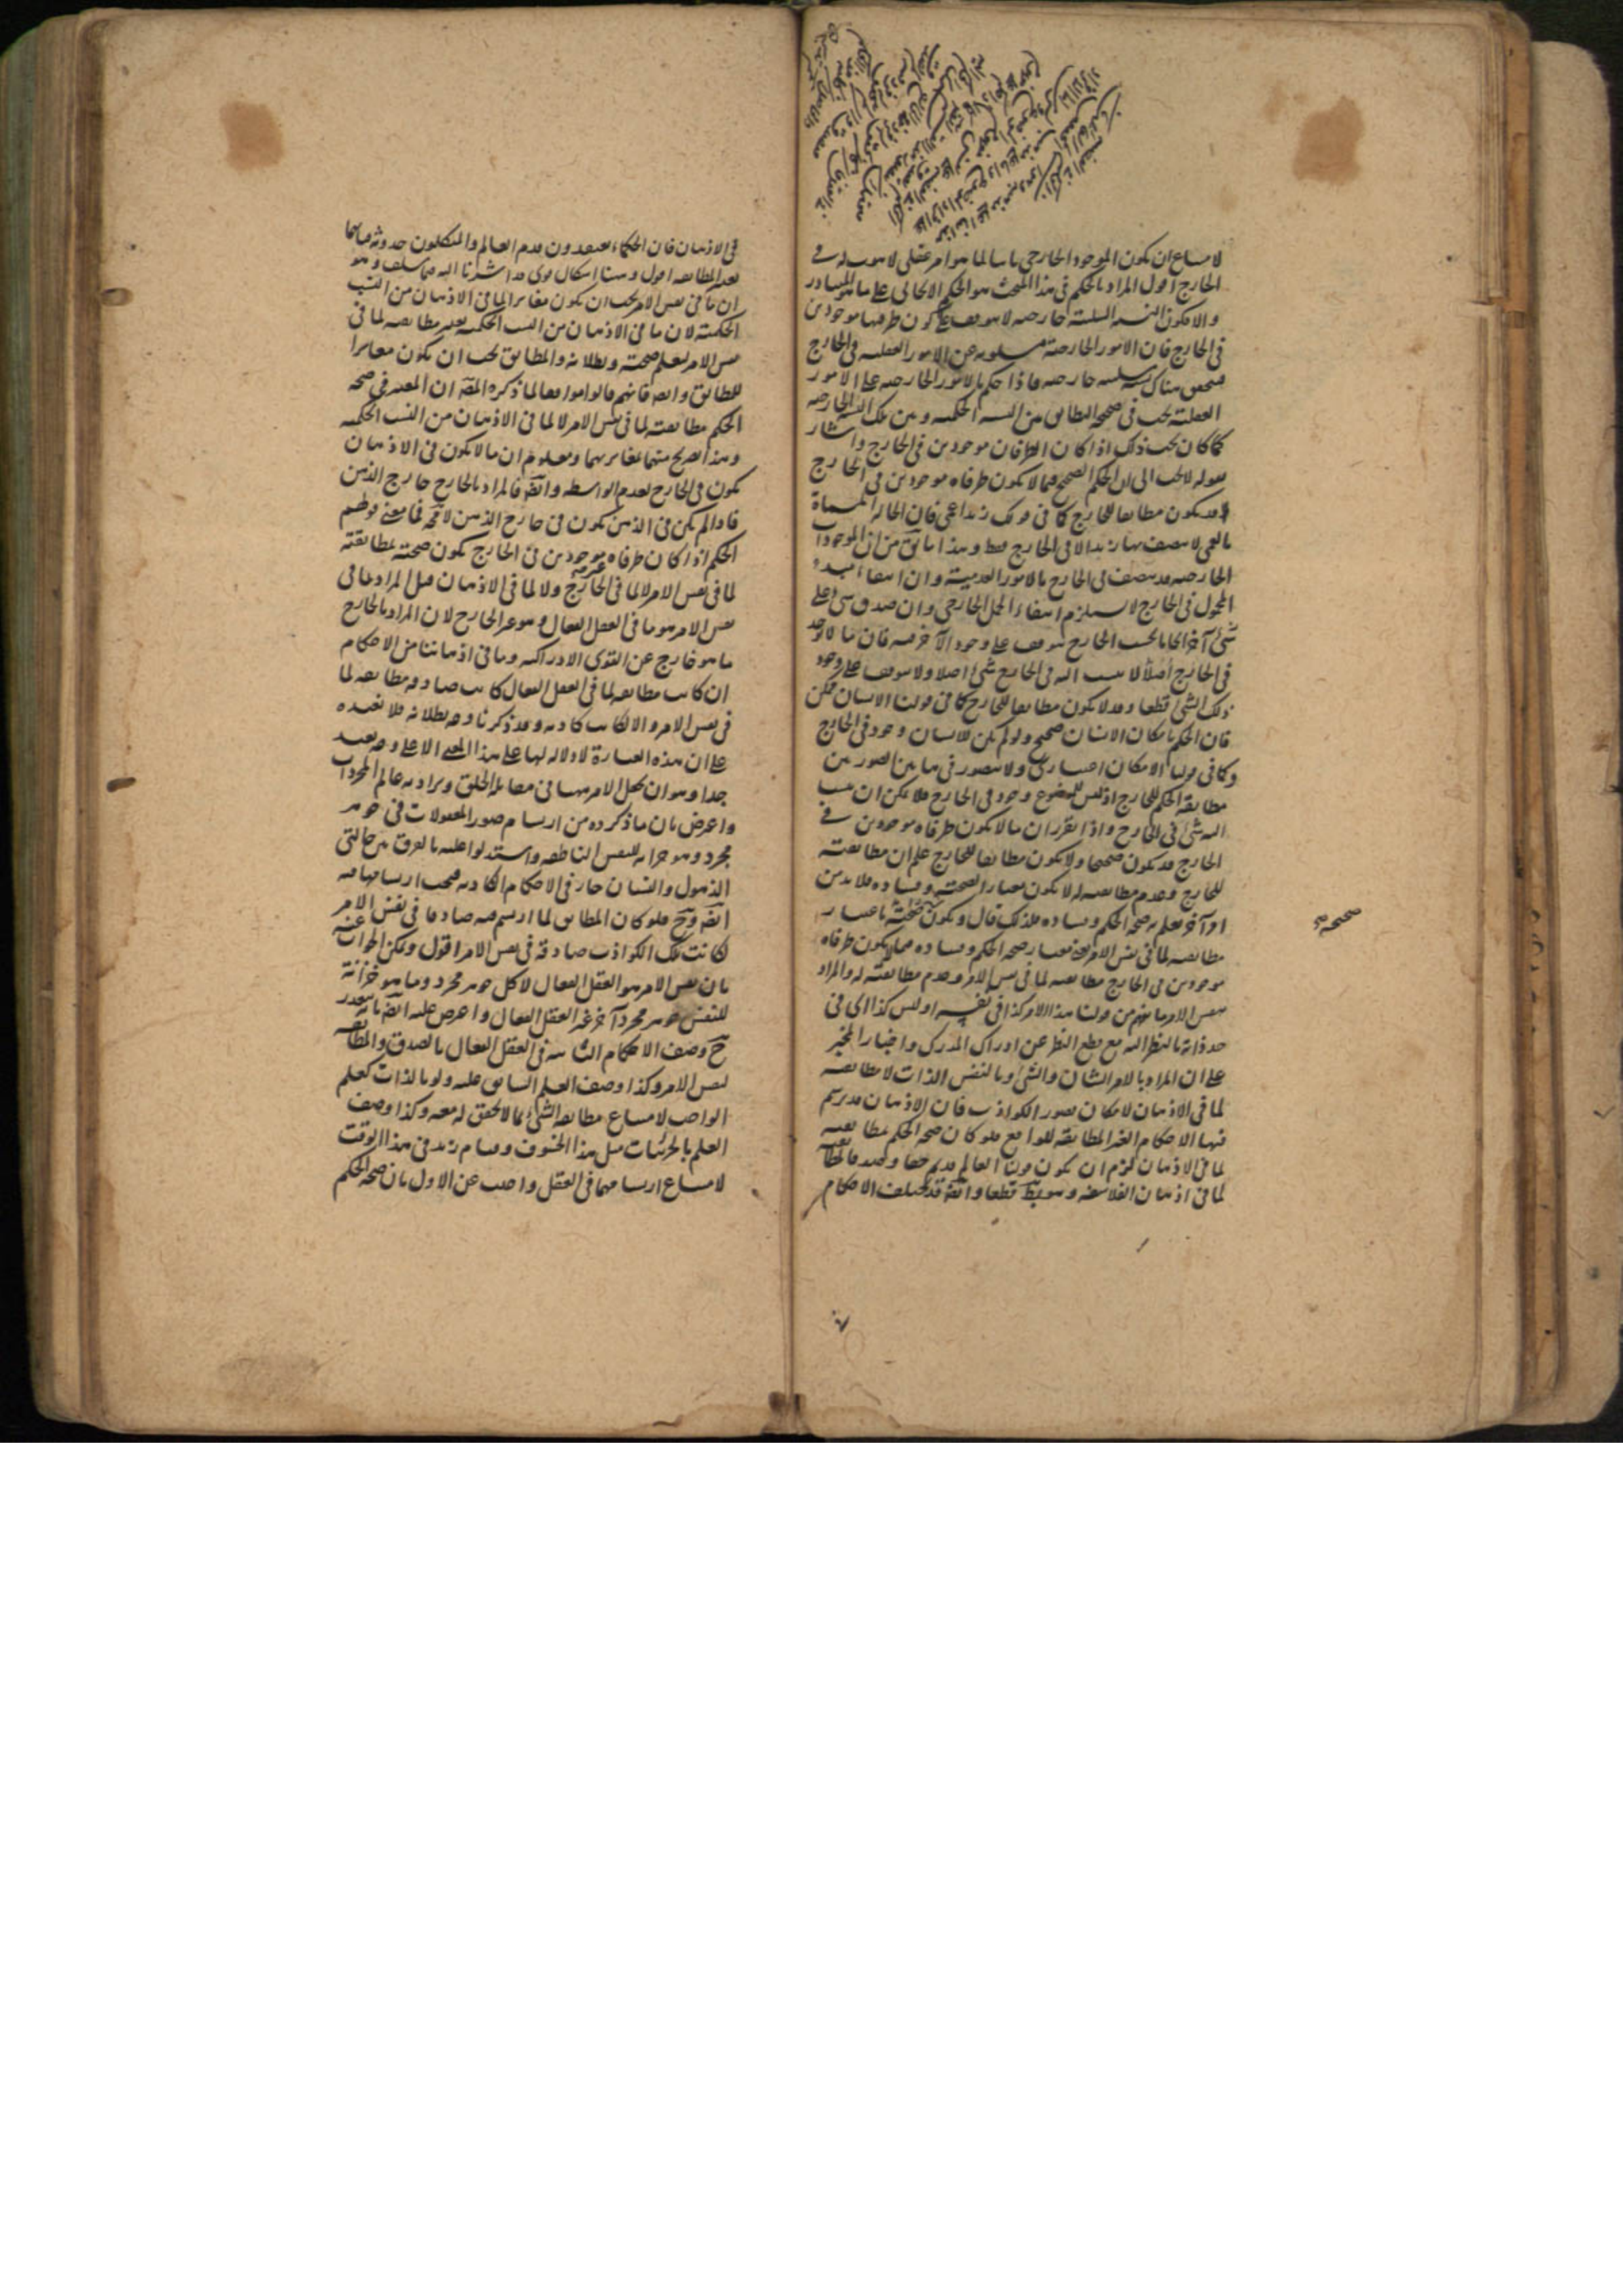 لامتناع ان يكون الموجود الخارجي ثابتا لما هو امر عقلي لا هوية له في
الخارج اقول المراد بالحكم في هذا المبحث هو الحكم الايجابي على ما هو المتبادر
والا فكون النسبة السلبية خارجية لا يتوقف على كون طرفيها موجودين
في الخارج فان الامور الخارجية مسلوبة عن الامور العقلية في الخارج
فتحقق هناك نسبة سلبية خارجية فاذا حكم بالامور الخارجية على الامور
العقلية يجب في صحته التطابق بين النسبة الحكمية وبين تلك النسبة الخارجية
كما كان يجب ذلك اذا كان الطرفان موجودين في الخارج واشار
بقوله لا يجب الى ان الحكم الصحيح فيما لا يكون طرفاه موجودين في الخارج
قد يكون مطابقا للخارج كما في قولك زيد اعمى فان الحالة المسماة
بالعمى لا يتصف بها زيد الا في الخارج فقط وهذا ما يق من ان الموجودات
الخارجية قد يتصف في الخارج بالامور العدمية وان انتفاء مبدء
المحمول في الخارج لا يستلزم انتفاء الحمل الخارجي وان صدق شئ على
شئ آخر ايجابا بحسب الخارج يتوقف على وجود الآخر فيه فان ما لا يوجد
في الخارج اصلا لا يثبت له في الخارج شئ اصلا ولا يتوقف على وجود
ذلك الشئ قطعا وقد لا يكون مطابقا للخارج كما في قولنا الانسان ممكن
فان الحكم بامكان الانسان صحيح ولو لم يكن للانسان وجود في الخارج
وكما في قولنا الامكان اعتباري ولا يتصور في هاتين الصورتين
مطابقة الحكم للخارج اذ ليس للموضوع وجود في الخارج فلا يمكن ان ينسب
اليه شئ في الخارج واذا تقرر ان ما لا يكون طرفاه موجودين في
الخارج قد يكون صحيحا ولا يكون مطابقا للخارج علم ان مطابقته
للخارج وعدم مطابقته له لا يكون معيارا لصحته وفساده فلا بد من
امر آخر يعلم به صحة الحكم وفساده فلذلك قال ويكون صحته باعتبار
مطابقته لما في نفس الامر يعني معيار صحة الحكم وفساده فيما لا يكون طرفاه
موجودين في الخارج مطابقته لما في نفس الامر وعدم مطابقته له والمراد
بنفس الامر ما يفهم من قولنا هذا الامر كذا في نفسه او ليس كذا اي في
حد ذاته بالنظر اليه مع قطع النظر عن ادراك المدرك واخبار المخبر
على ان المراد بالامر الشان والشئ وبالنفس الذات لا مطابقته
لما في الاذهان لامكان تصور الكواذب فان الاذهان قد يرتسم
فيها الاحكام الغير المطابقة للواقع فلو كان صحة الحكم بمطابقته
لما في الاذهان لزم ان يكون قولنا العالم قديم حقا وصدقا لمطابقته
لما في اذهان الفلاسفة وهو بط قطعا وايضا قد يختلف الاحكام
صحيحة صح
في الاذهان فان الحكماء يعتقدون قدم العالم والمتكلمون حدوثه فايهما
يعد المطابقة اقول وههنا اشكال قوي قد اشرنا اليه فيما سلف وهو
ان ما في نفس الامر يجب ان يكون مغايرا لما في الاذهان من النسب
الحكمية لان ما في الاذهان من النسب الحكمية يعتبر مطابقته لما في
نفس الامر ليعلم صحته وبطلانه والمطابق يجب ان يكون مغايرا
للمطابق وايضا فانهم قالوا موافقا لما ذكره المص ان المعتبر في صحة
الحكم مطابقته لما في نفس الامر لا لما في الاذهان من النسب الحكمية
وهذا تصريح منهم بتغايرهما ومعلوم ان ما لا يكون في الاذهان
يكون في الخارج لعدم الواسطة وايضا فالمراد بالخارج خارج الذهن
فاذا لم يكن في الذهن يكون في خارج الذهن لا محة فما معنى قولهم
الحكم اذا كان طرفاه غير موجودين في الخارج يكون صحته لمطابقته
لما في نفس الامر لا لما في الخارج ولا لما في الاذهان قيل المراد بما في
نفس الامر هو ما في العقل الفعال وهو غير الخارج لان المراد بالخارج
ما هو خارج عن القوى الادراكية وما في اذهاننا من الاحكام
ان كانت مطابقة لما في العقل الفعال كانت صادقة مطابقة لما
في نفس الامر والا كانت كاذبة وقد ذكرنا وجه بطلانه فلا نعيده
على ان هذه العبارة لا دلالة لها على هذا المعنى الا على وجه بعيد
جدا وهو ان يجعل الامر ههنا في مقابلة الخلق ويراد به عالم المجردات
واعترض بان ما ذكروه من ارتسام صور المعقولات في جوهر
مجرد وهو خزانة للنفس الناطقة واستدلوا عليه بالفرق بين حالتي
الذهول والنسيان جار في الاحكام الكاذبة فيجب ارتسامها فيه
ايضا وح فلو كان المطابق لما ارتسم فيه صادقا في نفس الامر
لكانت تلك الكواذب صادقة في نفس الامر اقول ويمكن الجواب عنه
بان نفس الامر هو العقل الفعال لا كل جوهر مجرد وما هو خزانة
للنفس جوهر مجرد آخر غير العقل الفعال واعترض عليه ايضا بتعذر
ح وصف الاحكام الثابتة في العقل الفعال بالصدق والمطابقة
لنفس الامر وكذا وصف العلم السابق عليه ولو بالذات كعلم
الواجب لامتناع مطابقة الشئ لما لا تحقق له معه وكذا وصف
العلم بالجزئيات مثل هذا الخسوف وقيام زيد في هذا الوقت
لامتناع ارتسامهما في العقل واجيب عن الاول بان صحة الحكم